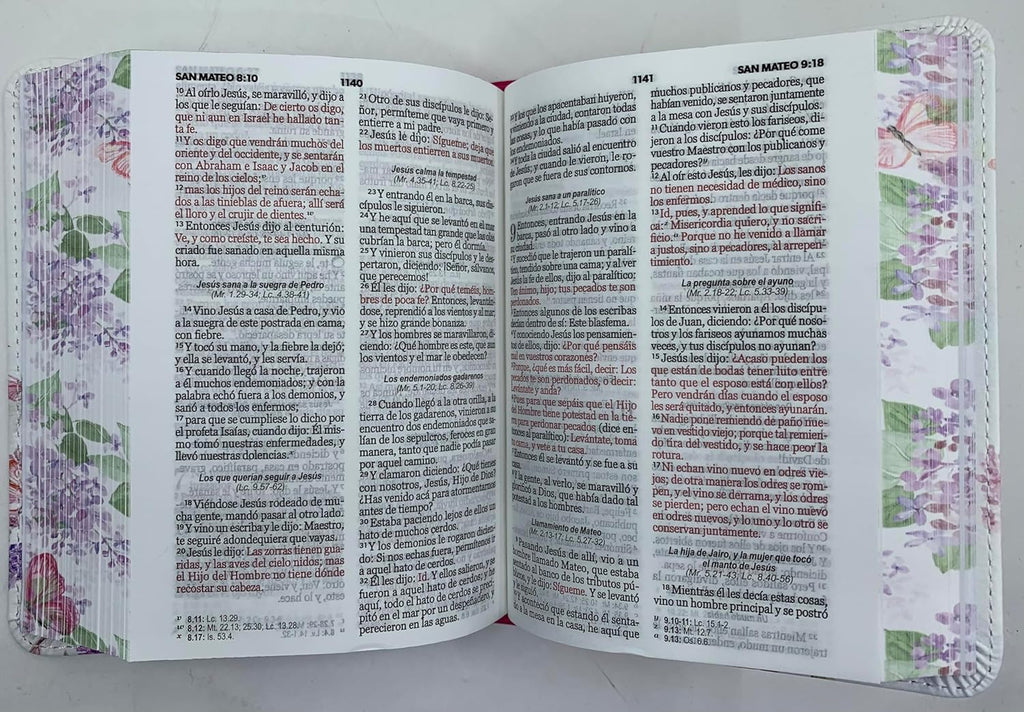 SAN MATEO 8:10
1140
10 Al oírlo Jesús, se maravilló, y dijo a
los que le seguían: De cierto os digo,
que ni aun en Israel he hallado tan-
ta fe.
11 Y os digo que vendrán muchos del
oriente y del occidente, y se sentarán
con Abraham e Isaac y Jacob en el
reino de los cielos;
12 mas los hijos del reino serán echa-
dos a las tinieblas de afuera; allí será
el lloro y el crujir de dientes.
13 Entonces Jesús dijo al centurión:
Ve, y como creíste, te sea hecho. Y su
criado fue sanado en aquella misma
hora.
Jesús sana a la suegra de Pedro
(Mr. 1.29-34; Lc. 4.38-41)
14 Vino Jesús a casa de Pedro, y vio
a la suegra de este postrada en cama,
con fiebre.
15 Y tocó su mano, y la fiebre la dejó;
y ella se levantó, y les servía.
16 Y cuando llegó la noche, trajeron
a él muchos endemoniados; y con la
palabra echó fuera a los demonios, y
sanó a todos los enfermos;
17 para que se cumpliese lo dicho por
el profeta Isaías, cuando dijo: Él mis-
mo tomó nuestras enfermedades, y
llevó nuestras dolencias.x
Los que querían seguir a Jesús
(Lc. 9.57-62)
18 Viéndose Jesús rodeado de mu-
cha gente, mandó pasar al otro lado.
19 Y vino un escriba y le dijo: Maestro,
te seguiré adondequiera que vayas.
20 Jesús le dijo: Las zorras tienen gua-
ridas, y las aves del cielo nidos; mas
el Hijo del Hombre no tiene dónde
recostar su cabeza.
v 8.11: Lc. 13.29.
w 8.12: Mt. 22.13; 25.30; Lc. 13.28.
x 8.17: Is. 53.4.
21 Otro de sus discípulos le dijo: Se-
ñor, permíteme que vaya primero y
entierre a mi padre.
22 Jesús le dijo: Sígueme; deja que
los muertos entierren a sus muertos.
Jesús calma la tempestad
(Mr. 4.35-41; Lc. 8.22-25)
23 Y entrando él en la barca, sus dis-
cípulos le siguieron.
24 Y he aquí que se levantó en el mar
una tempestad tan grande que las olas
cubrían la barca; pero él dormía.
25 Y vinieron sus discípulos y le des-
pertaron, diciendo: ¡Señor, sálvanos,
que perecemos!
26 Él les dijo: ¿Por qué teméis, hom-
bres de poca fe? Entonces, levantán-
dose, reprendió a los vientos y al mar;
y se hizo grande bonanza.
27 Y los hombres se maravillaron, di-
ciendo: ¿Qué hombre es este, que aun
los vientos y el mar le obedecen?
Los endemoniados gadarenos
(Mr. 5.1-20; Lc. 8.26-39)
28 Cuando llegó a la otra orilla, a la
tierra de los gadarenos, vinieron a su
encuentro dos endemoniados que sa-
lían de los sepulcros, feroces en gran
manera, tanto que nadie podía pasar
por aquel camino.
29 Y clamaron diciendo: ¿Qué tienes
con nosotros, Jesús, Hijo de Dios?
¿Has venido acá para atormentarnos
antes de tiempo?
30 Estaba paciendo lejos de ellos un
hato de muchos cerdos.
31 Y los demonios le rogaron dicien-
do: Si nos echas fuera, permítenos ir
a aquel hato de cerdos.
32 Él les dijo: Id. Y ellos salieron, y se
fueron a aquel hato de cerdos; y he
aquí, todo el hato de cerdos se preci-
pitó en el mar por un despeñadero, y
perecieron en las aguas.
1141
SAN MATEO 9:18
y los que los apacentaban huyeron,
y viniendo a la ciudad, contaron todas
las cosas, y lo que había pasado con
Y toda la ciudad salió al encuentro
de Jesús; y cuando le vieron, le ro-
garon que se fuera de sus contornos.
Jesús sana a un paralítico
(Mr. 2.1-12; Lc. 5.17-26)
9 Entonces, entrando Jesús en la
barca, pasó al otro lado y vino a
su ciudad.
Y sucedió que le trajeron un paralíti-
co, tendido sobre una cama; y al ver
Jesús la fe de ellos, dijo al paralítico:
Ten ánimo, hijo; tus pecados te son
perdonados.
Entonces algunos de los escribas
decían dentro de sí: Este blasfema.
Y conociendo Jesús los pensamien-
tos de ellos, dijo: ¿Por qué pensáis
mal en vuestros corazones?
Porque, ¿qué es más fácil, decir: Los
pecados te son perdonados, o decir:
Levántate y anda?
Pues para que sepáis que el Hijo
del Hombre tiene potestad en la tie-
rra para perdonar pecados (dice en-
tonces al paralítico): Levántate, toma
tu cama, y vete a tu casa.
Entonces él se levantó y se fue a su
casa.
Y la gente, al verlo, se maravilló y
glorificó a Dios, que había dado tal
potestad a los hombres.
Llamamiento de Mateo
(Mr. 2.13-17; Lc. 5.27-32)
Pasando Jesús de allí, vio a un
hombre llamado Mateo, que estaba
sentado al banco de los tributos pú-
blicos, y le dijo: Sígueme. Y se levantó
y le siguió.
Y aconteció que estando él senta-
do a la mesa en la casa, he aquí que
muchos publicanos y pecadores, que
habían venido, se sentaron juntamente
a la mesa con Jesús y sus discípulos.
11 Cuando vieron esto los fariseos, di-
jeron a los discípulos: ¿Por qué come
vuestro Maestro con los publicanos y
pecadores?
12 Al oír esto Jesús, les dijo: Los sanos
no tienen necesidad de médico, sino
los enfermos.
13 Id, pues, y aprended lo que signifi-
ca: Misericordia quiero, y no sacri-
ficio. Porque no he venido a llamar
a justos, sino a pecadores, al arrepen-
timiento.
La pregunta sobre el ayuno
(Mr. 2.18-22; Lc. 5.33-39)
14 Entonces vinieron a él los discípu-
los de Juan, diciendo: ¿Por qué noso-
tros y los fariseos ayunamos muchas
veces, y tus discípulos no ayunan?
15 Jesús les dijo: ¿Acaso pueden los
que están de bodas tener luto entre
tanto que el esposo está con ellos?
Pero vendrán días cuando el esposo
les será quitado, y entonces ayunarán.
16 Nadie pone remiendo de paño nue-
vo en vestido viejo; porque tal remien-
do tira del vestido, y se hace peor la
rotura.
17 Ni echan vino nuevo en odres vie-
jos; de otra manera los odres se rom-
pen, y el vino se derrama, y los odres
se pierden; pero echan el vino nuevo
en odres nuevos, y lo uno y lo otro se
conservan juntamente.
La hija de Jairo, y la mujer que tocó
el manto de Jesús
(Mr. 5.21-43; Lc. 8.40-56)
18 Mientras él les decía estas cosas,
vino un hombre principal y se postró
9.10-11: Lc. 15.1-2
9.13: Mt. 12.7.
9.13: Os. 6.6.